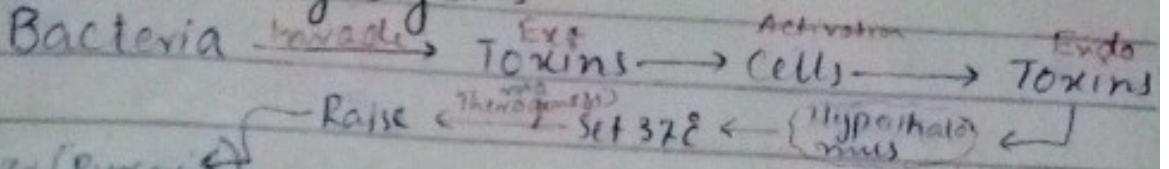 Bacteria Invade → Exo Toxins → Activation Cells → Endo Toxins
Raise ← Set 37°C ← (Hypothalo mus)